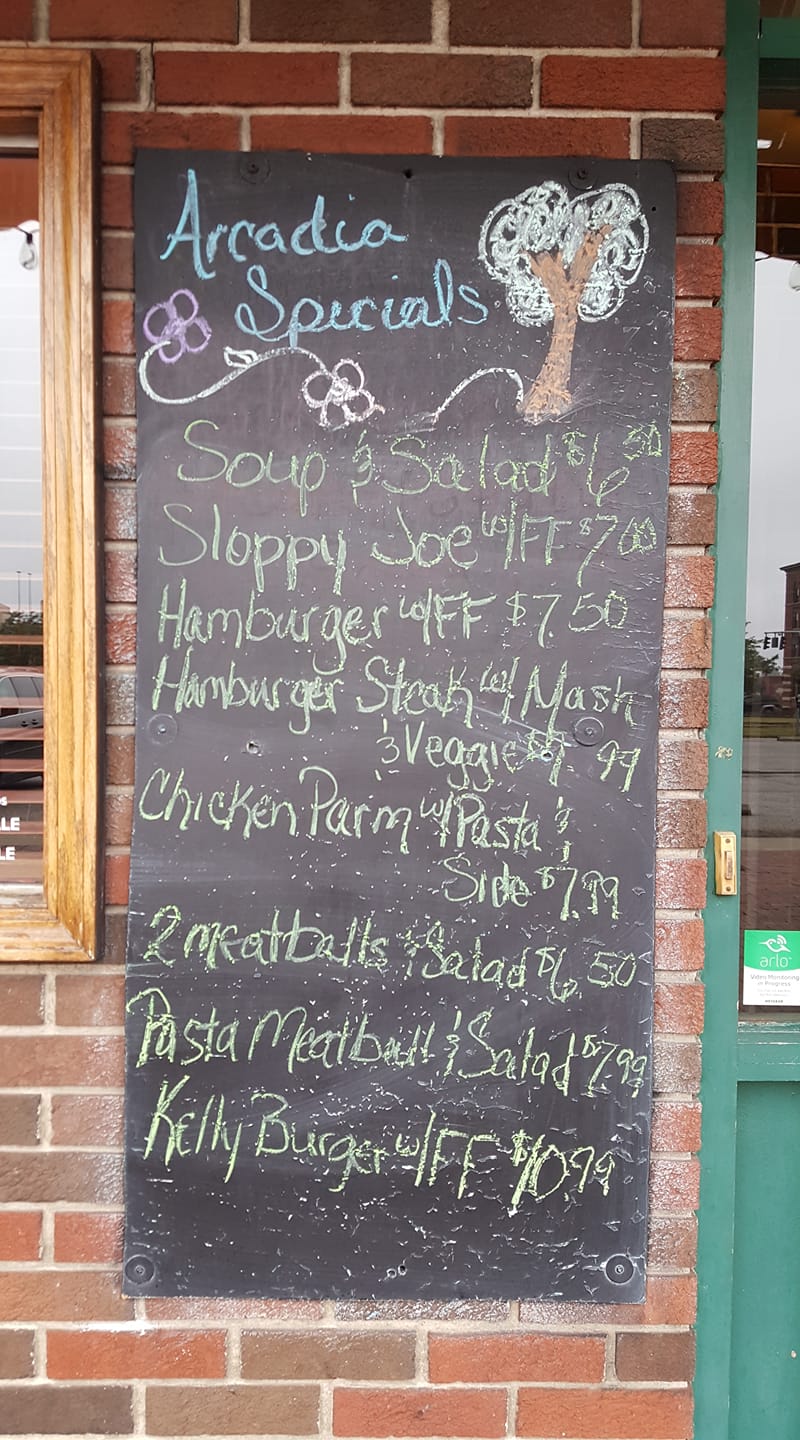 Arcadia
Specials
Soup & Salad $6.50
Sloppy Joe w/FF $7.00
Hamburger w/FF $7.50
Hamburger Steak w/ Mash
& Veggie $9.99
Chicken Parm w/Pasta &
Side $7.99
2 meatballs & Salad $6.50
Pasta Meatball & Salad $7.99
Kelly Burger w/FF $10.99
LE
LE
arlo
Video Monitoring
in Progress